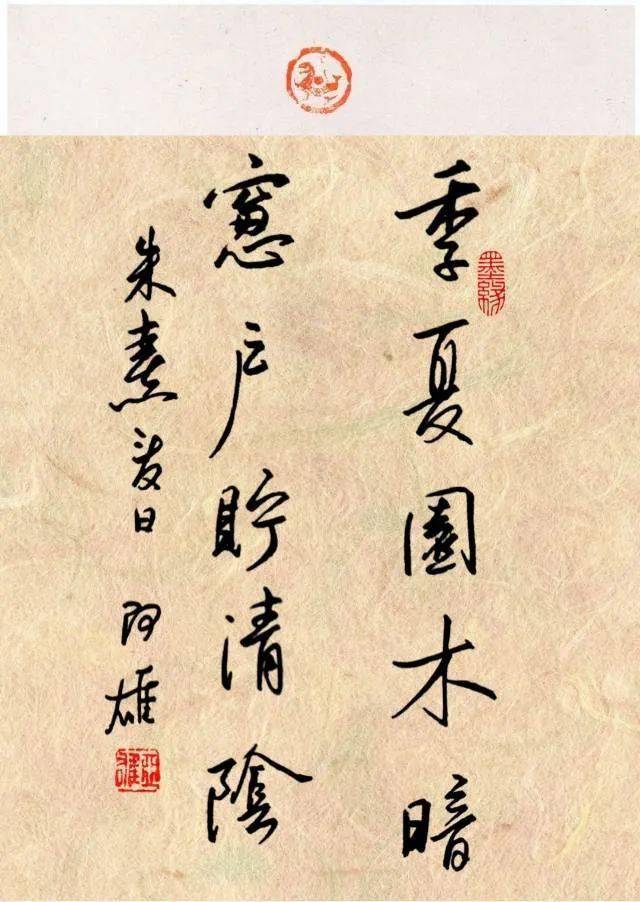 季夏園木暗
窻户貯清陰
朱熹夏日 阿雄